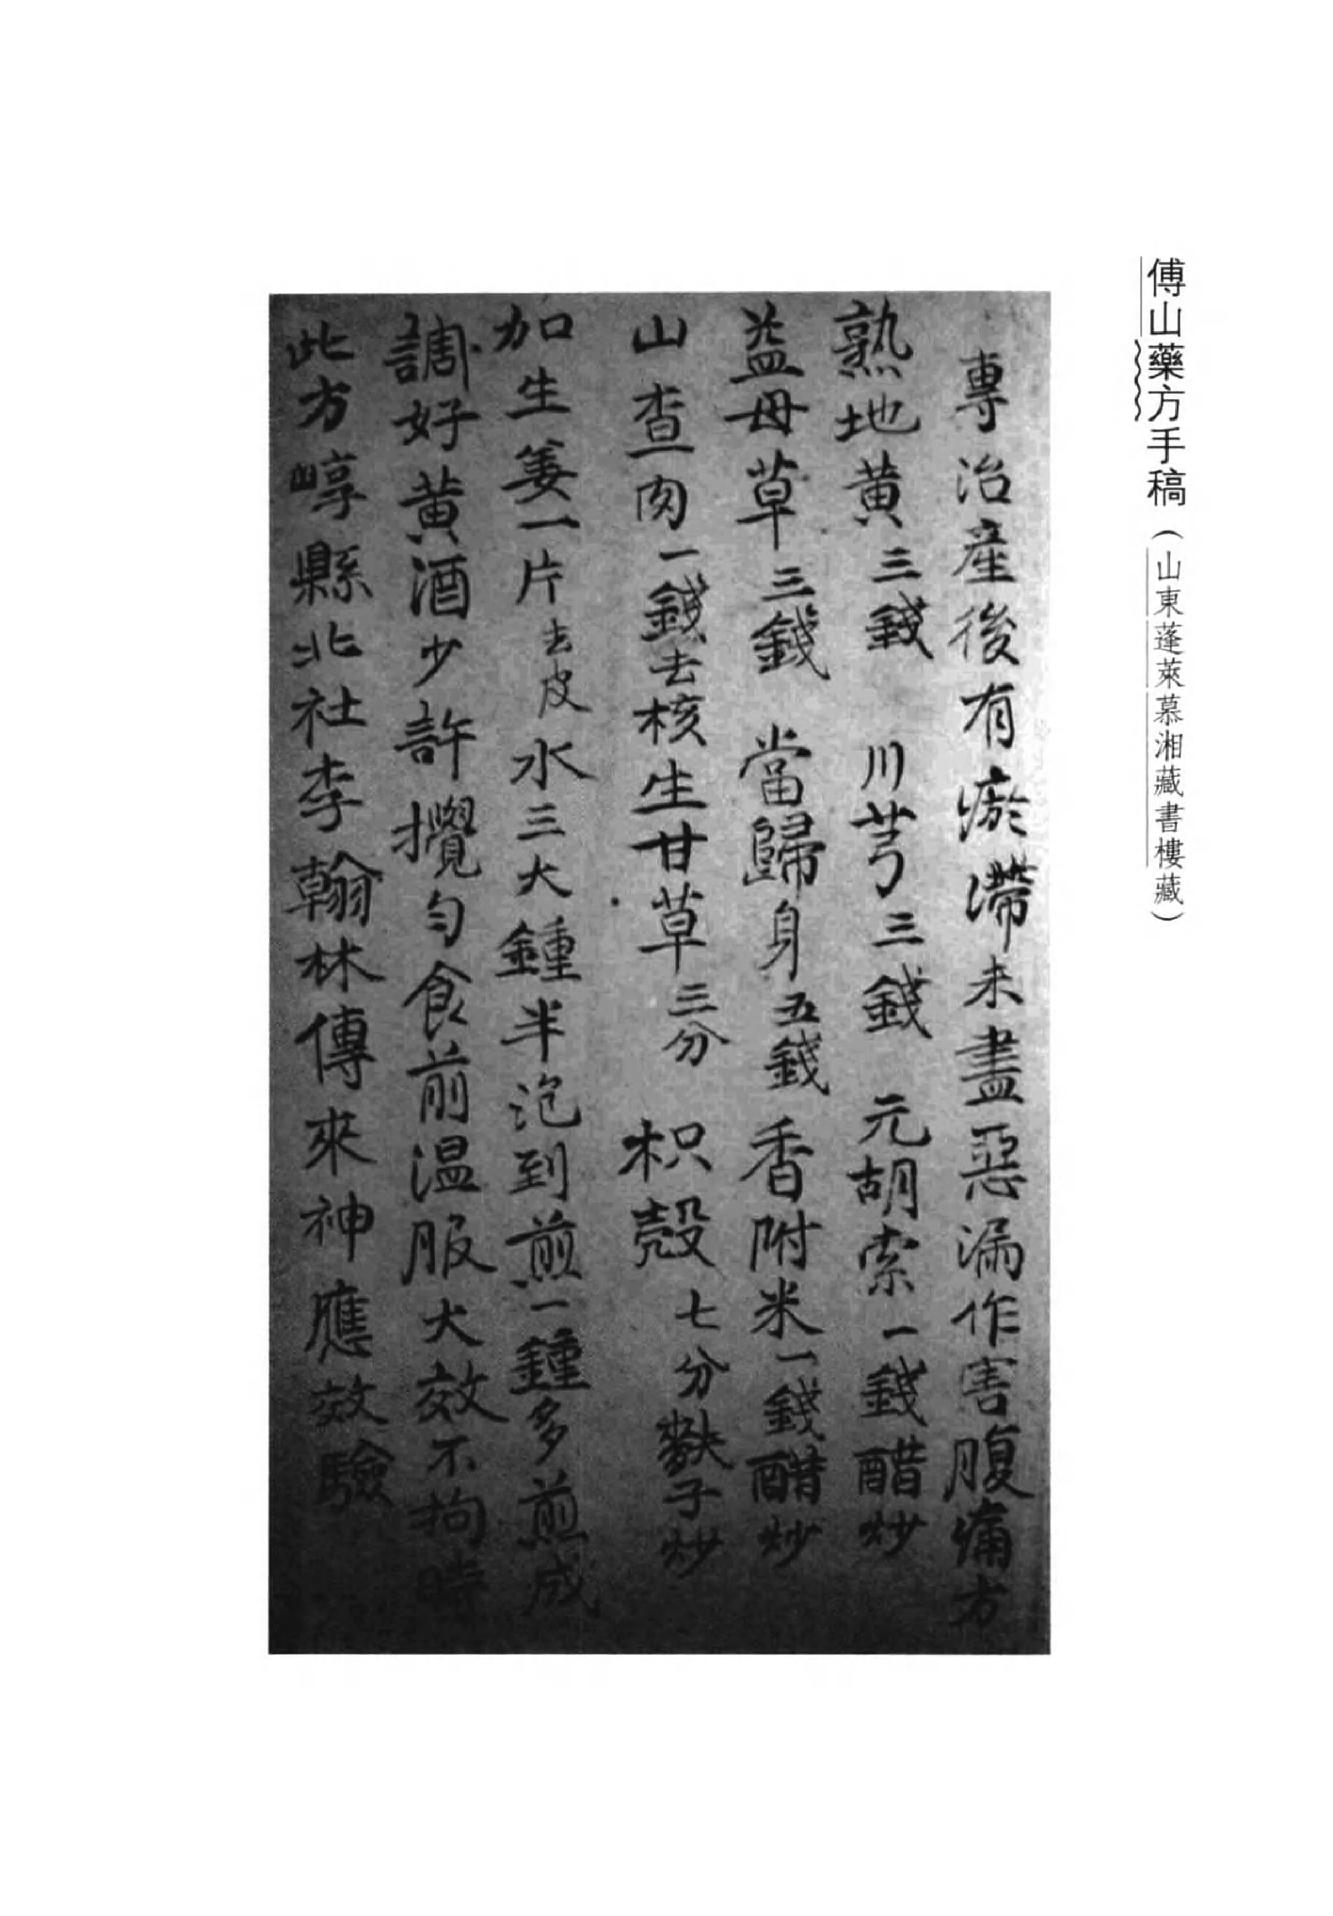 傅山藥方手稿（山東蓬萊慕湘藏書樓藏）
專治産後有瘀滯未盡惡漏作害腹痛方
熟地黄三錢 川芎三錢 元胡索一錢醋炒
益母草三錢 當歸身五錢 香附米一錢醋炒
山查肉一錢去核 生甘草三分 枳殼七分麩子炒
加生姜一片去皮水三大鍾半泡到煎一鍾多煎成
調好黄酒少許攪勻食前温服大效不拘時
此方崞縣北社李翰林傳來神應效驗